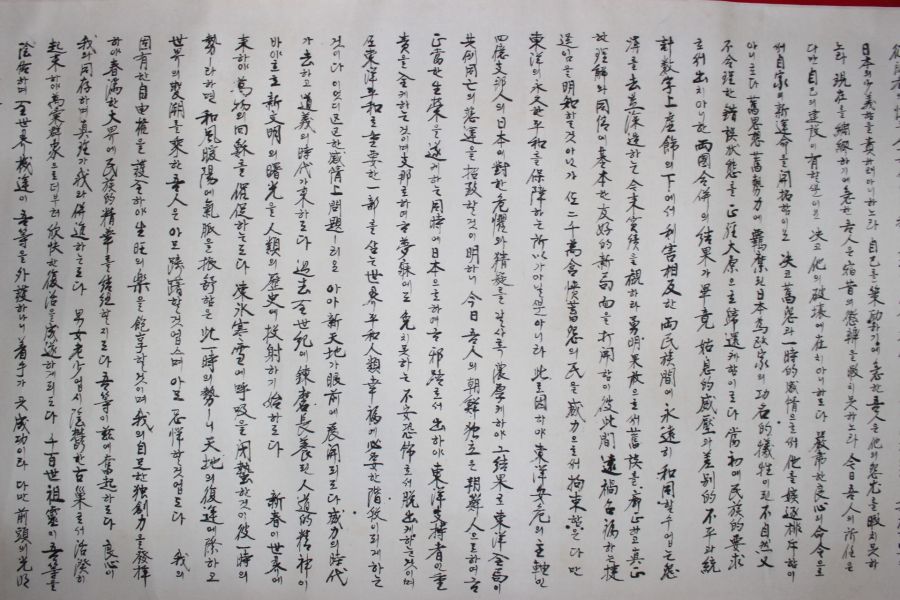 日本의 少義함을 責하려 아니하노라 自己를 策勵하기에 急한 吾人은 他의 怨尤를 暇치 못하
노라 現在를 綢繆하기에 急한 吾人은 宿昔의 懲辯을 暇치 못하노라 今日 吾人의 所任은
다만 自己의 建設이 有할 뿐이오 決코 他의 破壞에 在치 아니하도다 嚴肅한 良心의 命令으로
써 自家의 新運命을 開拓함이오 決코 舊怨과 一時的 感情으로써 他를 嫉逐排斥함이
아니로다 舊思想 舊勢力에 羈縻된 日本 爲政家의 功名的 犧牲이 된 不自然 又
不合理한 錯誤狀態를 正經大原으로 歸還케 함이로다 當初에 民族的 要求
로서 出치 아니한 兩國合倂의 結果가 畢竟 姑息的 威壓과 差別的 不平과 統
計數字上 虛飾의 下에서 利害相反한 兩民族間에 永遠히 和同할 수 업는 怨
溝를 去益深造하는 今來實績을 觀하라 勇明果敢으로써 舊誤를 廓正하고 眞正
한 理解와 同情에 基本한 友好的 新局面을 打開함이 彼此間 遠禍召福하는 捷
逕임을 明知할 것 아닌가 佢 二千萬 含憤蓄怨의 民을 威力으로써 拘束함은 다만
東洋의 永久한 平和를 保障하는 所以가 아닐 뿐 아니라 此로 因하야 東洋安危의 主軸인
四億支那人의 日本에 對한 危懼와 猜疑를 갈사록 濃厚케 하야 그 結果로 東洋全局이
共倒同亡의 悲運을 招致할 것이 明하니 今日 吾人의 朝鮮獨立은 朝鮮人으로 하여금
正當한 生榮을 遂케 하는 同時에 日本으로 하여금 邪路로서 出하야 東洋支持者인 重
責을 全케 하는 것이며 支那로 하여금 夢寐에도 免치 못하는 不安 恐怖로서 脫出케 하는 것이며
또 東洋平和로 重要한 一部를 삼는 世界平和 人類幸福에 必要한 階段이 되게 하는
것이다 이 엇지 區區한 感情上 問題 ㅣ리오 아아 新天地가 眼前에 展開되도다 威力의 時代
가 去하고 道義의 時代가 來하도다 過去 全世紀에 鍊磨長養된 人道的 精神이
바야흐로 新文明의 曙光을 人類의 歷史에 投射하기 始하도다 新春이 世界에
來하야 萬物의 回穌를 催促하는도다 凍氷寒雪에 呼吸을 閉蟄한 것이 彼一時의
勢ㅣ라하면 和風暖陽에 氣脈을 振舒함은 此一時의 勢ㅣ니 天地의 復運에 際하고
世界의 變潮를 乘한 吾人은 아모 躊躇할 것 업스며 아모 忌憚할 것 업도다 我의
固有한 自由權을 護全하야 生旺의 樂을 飽享할 것이며 我의 自足한 獨創力을 發揮
하야 春滿한 大界에 民族的 精華를 結紐할지로다 吾等이 玆에 奮起하도다 良心이
我와 同存하며 眞理가 我와 倂進하는도다 男女老少 업시 陰鬱한 古巢로서 活潑히
起來하야 萬彙群象으로 더부러 欣快한 復活을 成遂하게 되도다 千百世 祖靈이 吾等을
陰佑하며 全世界 氣運이 吾等을 外護하나니 着手가 곳 成功이라 다만 前頭의 光明